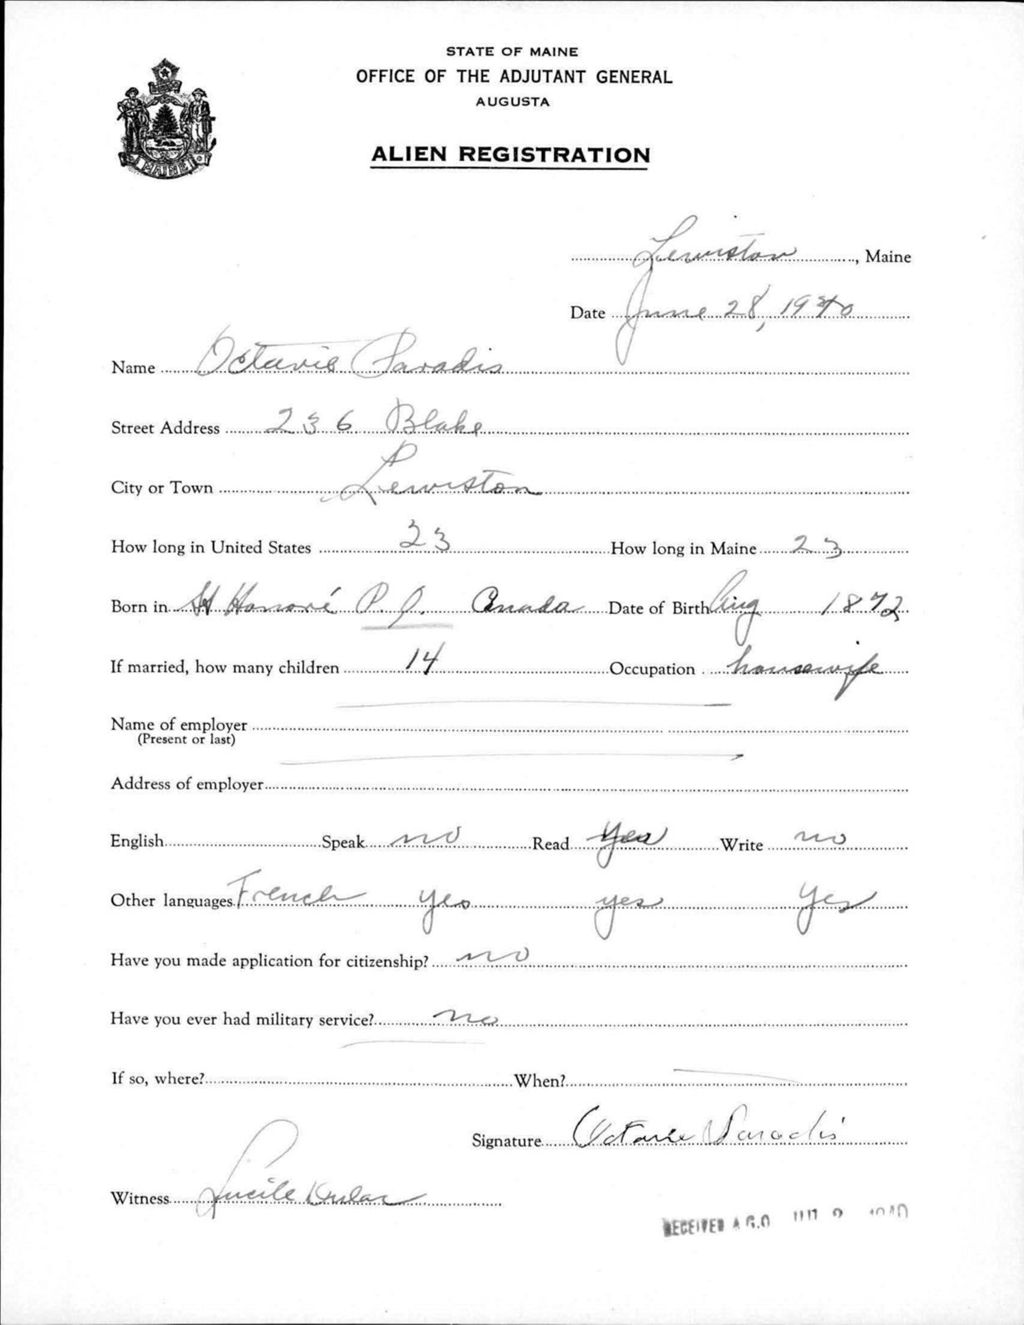 STATE OF MAINE
OFFICE OF THE ADJUTANT GENERAL
AUGUSTA
ALIEN REGISTRATION
MAINE
Lewiston, Maine
Date June 28, 1940
Name Octavie Paradis
Street Address 236 Blake
City or Town Lewiston
How long in United States 23 How long in Maine 23
Born in St Honoré P. Q. Canada Date of Birth Aug 1872
If married, how many children 14 Occupation housewife
Name of employer
(Present or last)
Address of employer
English Speak no Read Yes Write no
Other languages French yes yes yes
Have you made application for citizenship? no
Have you ever had military service? no
If so, where? When?
Signature Octavie Paradis
Witness Lucile
RECEIVED A.G.O. 2 1940